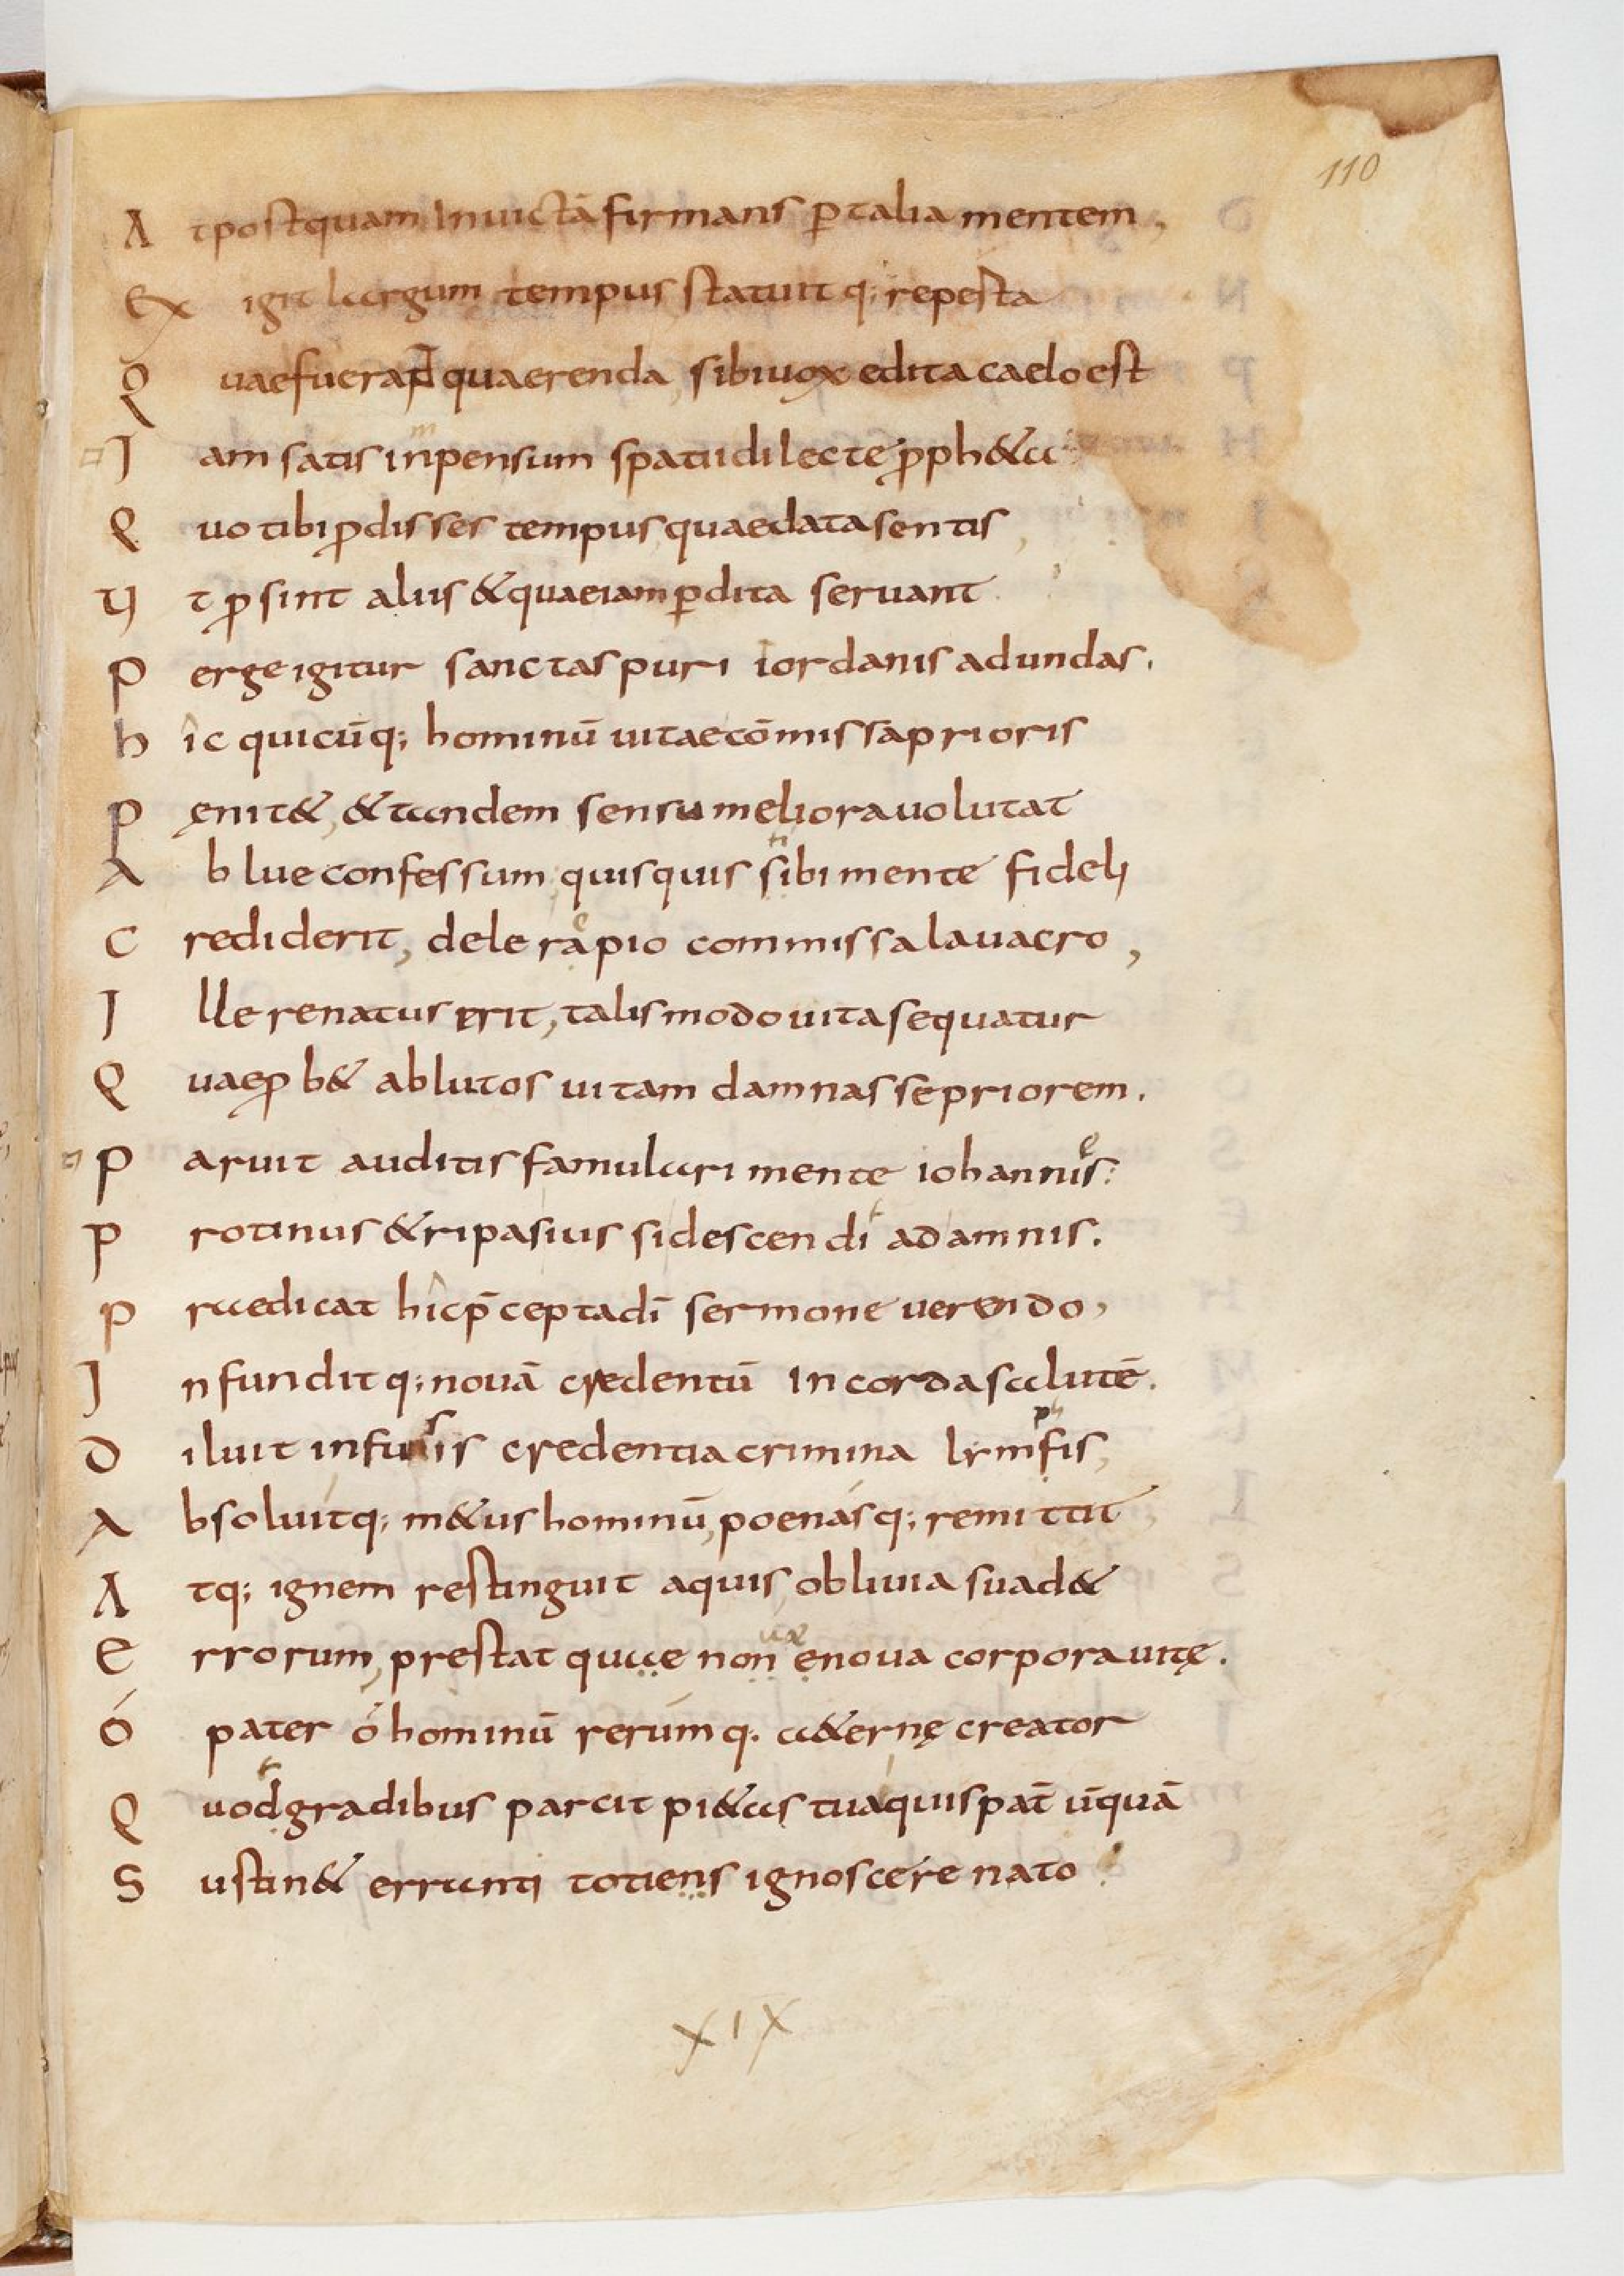 110
At postquam Inuictā firmans ꝑ talia mentem,
Exigit largum tempus statuitq; repesta
Quae fuerant quaerenda, sibi uox edita caelo est
Jam satis inpensum spatii dilecte ꝓph&a
Quo tibi ꝓdisses tempus, quae data sentis,
Vt ꝓsint aliis & quae iam ꝑdita seruant.
Perge igitur sanctas puri iordanis ad undas.
hîc quicūq; hominū uitae cōmissa prioris
Pęnit&, & tandem sensu meliora uolutat
Ablue confessum, quisquis sibi mente fideli
Crediderit, delera pio commissa lauacro,
Jlle renatus erit, talis modo uita sequatur
Quae ꝓb& ablutos uitam damnasse priorem.
Paruit auditis famulari mente iohannis:
Protinus & ripas ius si descendi ad amnis.
Praedicat hîc p̄cepta dī sermone uerendo,
Jnfunditq; nouā credentū In corda salutē.
Diluit infusis credentia crimina lymfis,
Absoluitq; m&us hominū, poenasq; remittit,
Atq; ignem restinguit aquis, obliuia suad&
Errorum, prestat quae non e noua corpora uitę.
ó pater ó hominū rerúmq. a&ernę creator
Quod gradibus parcit pi&as tua quis pat̄ ūquā
Sustin& erranti totiens ignoscere nato
XIX